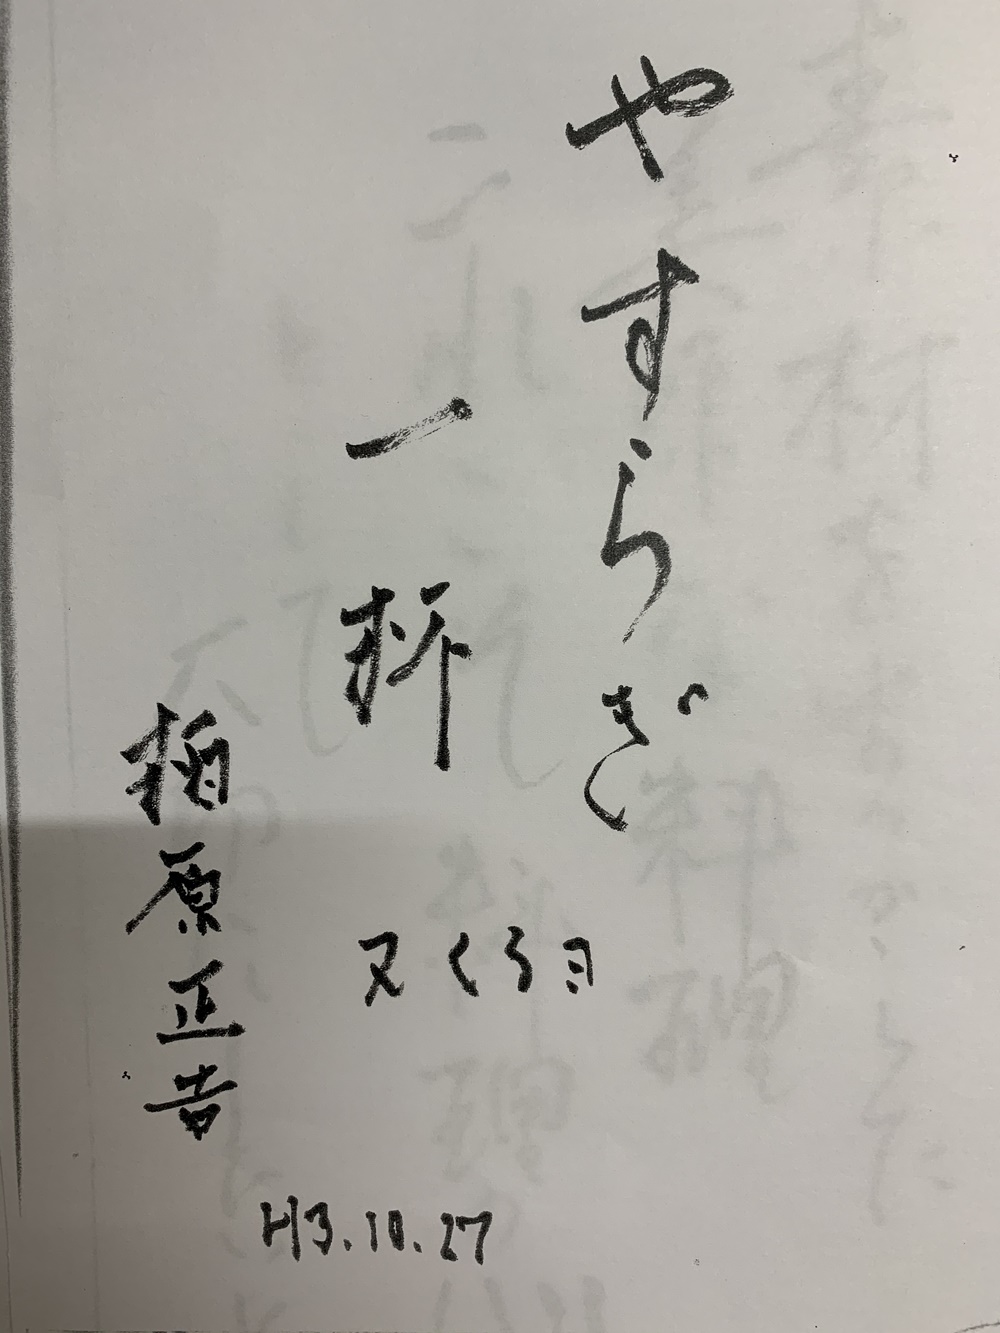 やすらぎ
一杯
又くる日
柏原正吉
H3.10.27